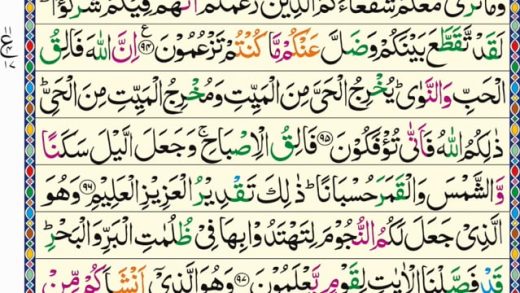 وَمَا نَرٰى مَعَكُمْ شُفَعَآءَكُمُ الَّذِيْنَ زَعَمْتُمْ اَنَّهُمْ فِيْكُمْ شُرَكٰٓؤُا ؕ
لَقَدْ تَّقَطَّعَ بَيْنَكُمْ وَضَلَّ عَنْكُمْ مَّا كُنْتُمْ تَزْعُمُوْنَ ﴿۹۴﴾ اِنَّ اللّٰهَ فَالِقُ
الْحَبِّ وَالنَّوٰى ؕ يُخْرِجُ الْحَىَّ مِنَ الْمَيِّتِ وَمُخْرِجُ الْمَيِّتِ مِنَ الْحَىِّ ؕ
ذٰلِكُمُ اللّٰهُ فَاَنّٰى تُؤْفَكُوْنَ ﴿۹۵﴾ فَالِقُ الْاِصْبَاحِ ۚ وَجَعَلَ الَّيْلَ سَكَنًا
وَّالشَّمْسَ وَالْقَمَرَ حُسْبَانًا ؕ ذٰلِكَ تَقْدِيْرُ الْعَزِيْزِ الْعَلِيْمِ ﴿۹۶﴾ وَهُوَ
الَّذِىْ جَعَلَ لَكُمُ النُّجُوْمَ لِتَهْتَدُوْا بِهَا فِىْ ظُلُمٰتِ الْبَرِّ وَالْبَحْرِ ؕ
قَدْ فَصَّلْنَا الْاٰيٰتِ لِقَوْمٍ يَّعْلَمُوْنَ ﴿۹۷﴾ وَهُوَ الَّذِىْٓ اَنْشَاَكُمْ مِّنْ